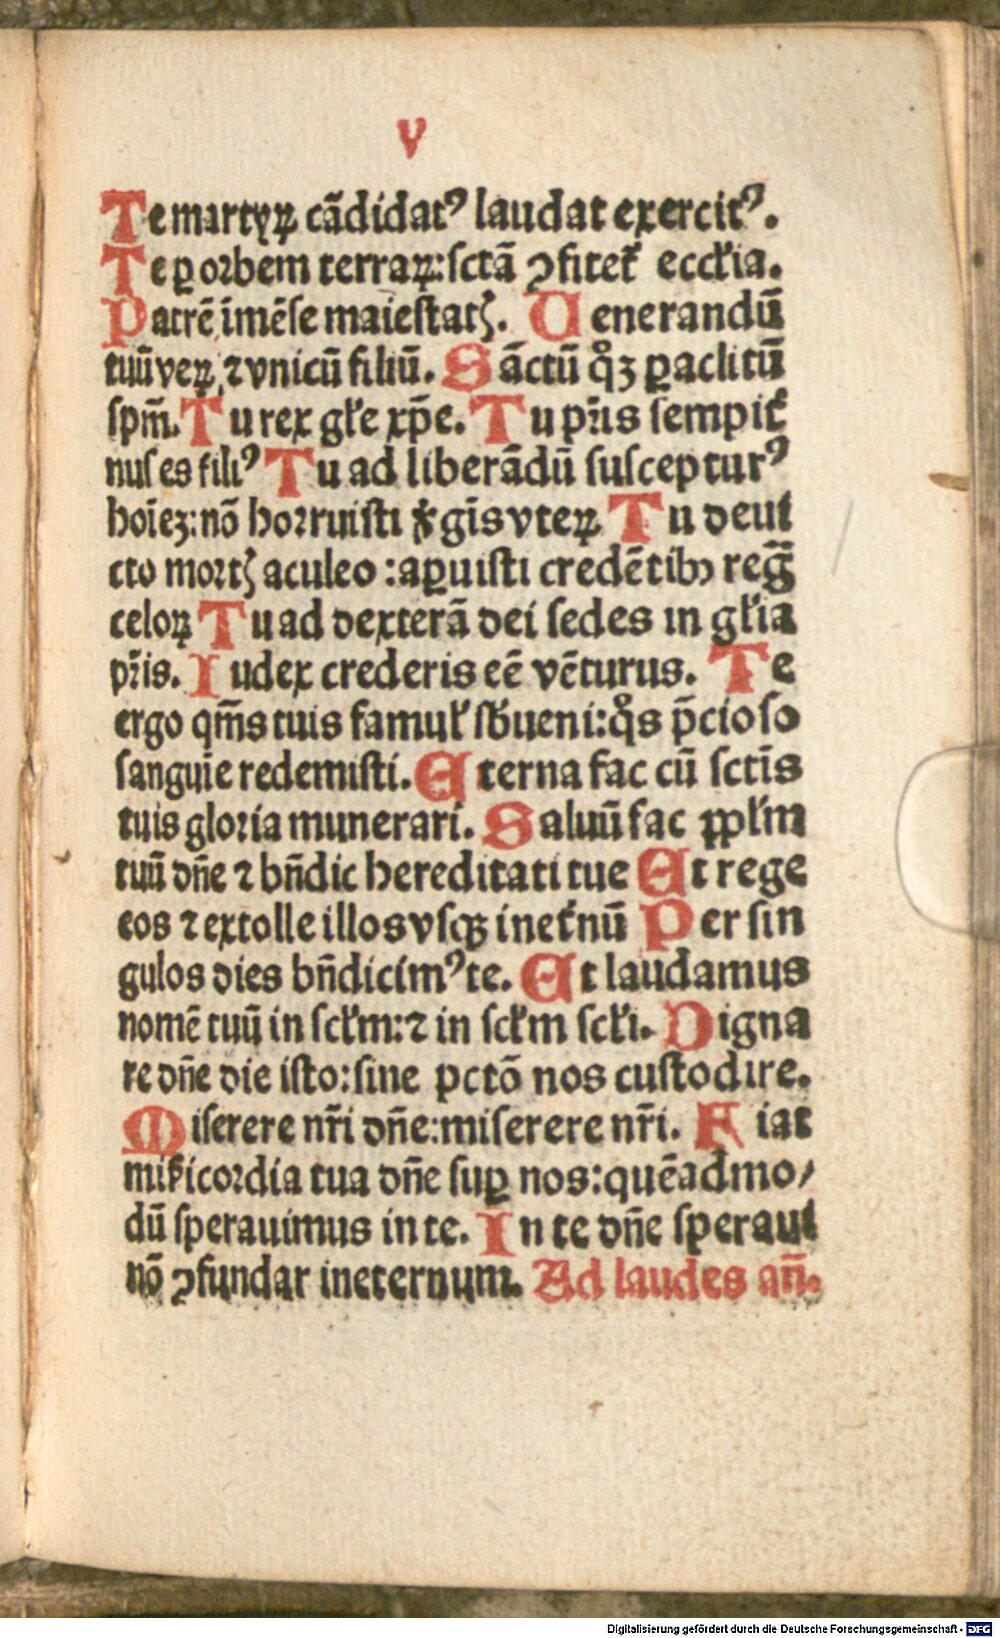 v
Te martyꝝ cādidatꝰ laudat exercitꝰ.
Te ꝑ orbem terraꝝ: sctā ꝯfitet᷑ eccl̕ia.
Patrē imēse maiestatꝭ. Uenerandū
tuū veꝝ ⁊ vnicū filiū. Sāctū qͦꝫ ꝑaclitū
spm̄. Tu rex gl̕e xp̄e. Tu pr̄is sempit᷑
nus es filiꝰ Tu ad liberādū suscepturꝰ
hoīeꝫ: nō horruisti v̓gīs vteꝝ Tu deui
cto mortꝭ aculeo: aꝑuisti credētibꝫ reg̅
celoꝝ Tu ad dexterā dei sedes in gl̕ia
pr̄is. Iudex crederis eē vēturus. Te
ergo qm̄s tuis famul̕ sb̕ueni: qͦs p̄cioso
sanguīe redemisti. Eterna fac cū sctīs
tuis gloria munerari. Saluū fac ppl̕m
tuū dn̄e ⁊ bn̄dic hereditati tue Et rege
eos ⁊ extolle illos vsqꝫ in et᷑nū Per sin
gulos dies bn̄dicimꝰ te. Et laudamus
nomē tuū in scl̕m: ⁊ in scl̕m scl̕i. Digna
re dn̄e die isto: sine pctō nos custodire.
Miserere nr̄i dn̄e: miserere nr̄i. Fiat
mi᷑icordia tua dn̄e suꝑ nos: quēadmo/
dū sperauimus in te. In te dn̄e speraui
nō ꝯfundar in eternum. Ad laudes an̄.
Digitalisierung gefördert durch die Deutsche Forschungsgemeinschaft - DFG